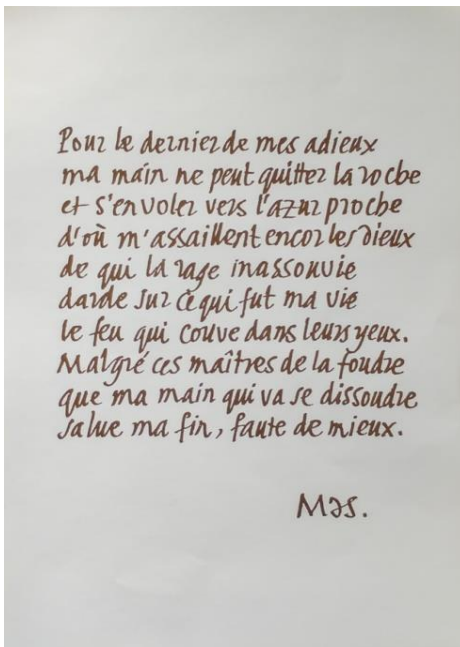 Pour le dernier de mes adieux
ma main ne peut quitter la roche
et s'envoler vers l'azur proche
d'où m'assaillent encor les dieux
de qui la rage inassouvie
darde sur ce qui fut ma vie
le feu qui couve dans leurs yeux.
Malgré ces maîtres de la foudre
que ma main qui va se dissoudre
salue ma fin, faute de mieux.
Mas.